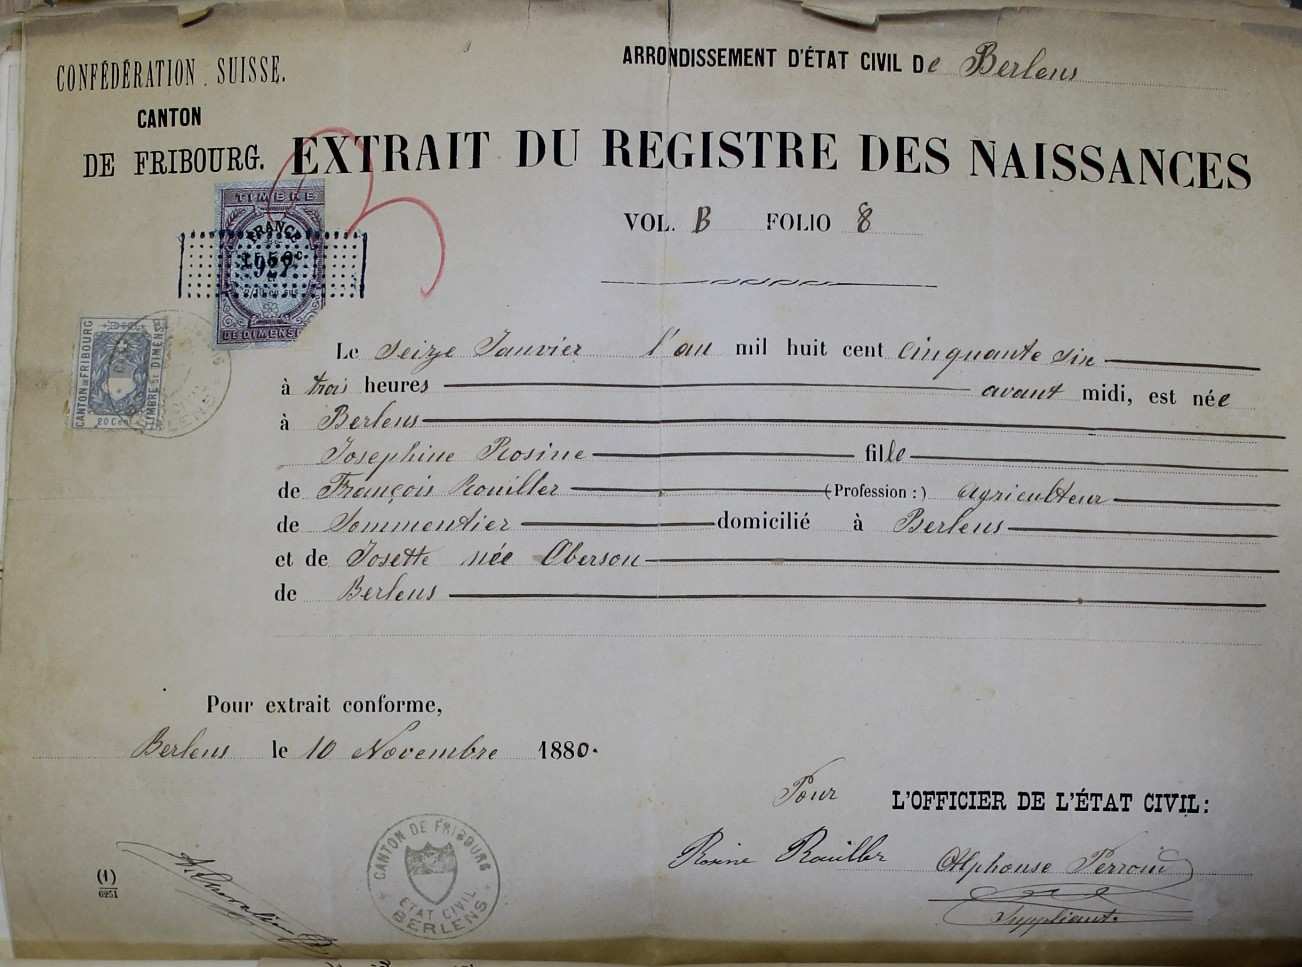 CONFÉDÉRATION SUISSE.
CANTON
DE FRIBOURG.
ARRONDISSEMENT D'ÉTAT CIVIL De Berlens
EXTRAIT DU REGISTRE DES NAISSANCES
VOL. B FOLIO 8
TIMBRE
FRANC
DE DIMENS
CANTON DE FRIBOURG
TIMBRE DE DIMENS
20 Cent
Le seize Janvier l'an mil huit cent cinquante six
à trois heures avant midi, est née
à Berlens
Josephine Rosine fille
de François Rouiller (Profession :) agriculteur
de Sommentier domicilié à Berlens
et de Josette née Oberson
de Berlens
Pour extrait conforme,
Berlens le 10 Novembre 1880.
Pour L'OFFICIER DE L'ÉTAT CIVIL:
Rosine Rouiller Alphonse Perroud
Suppléant.
CANTON DE FRIBOURG
ETAT CIVIL
BERLENS
(1)
6251